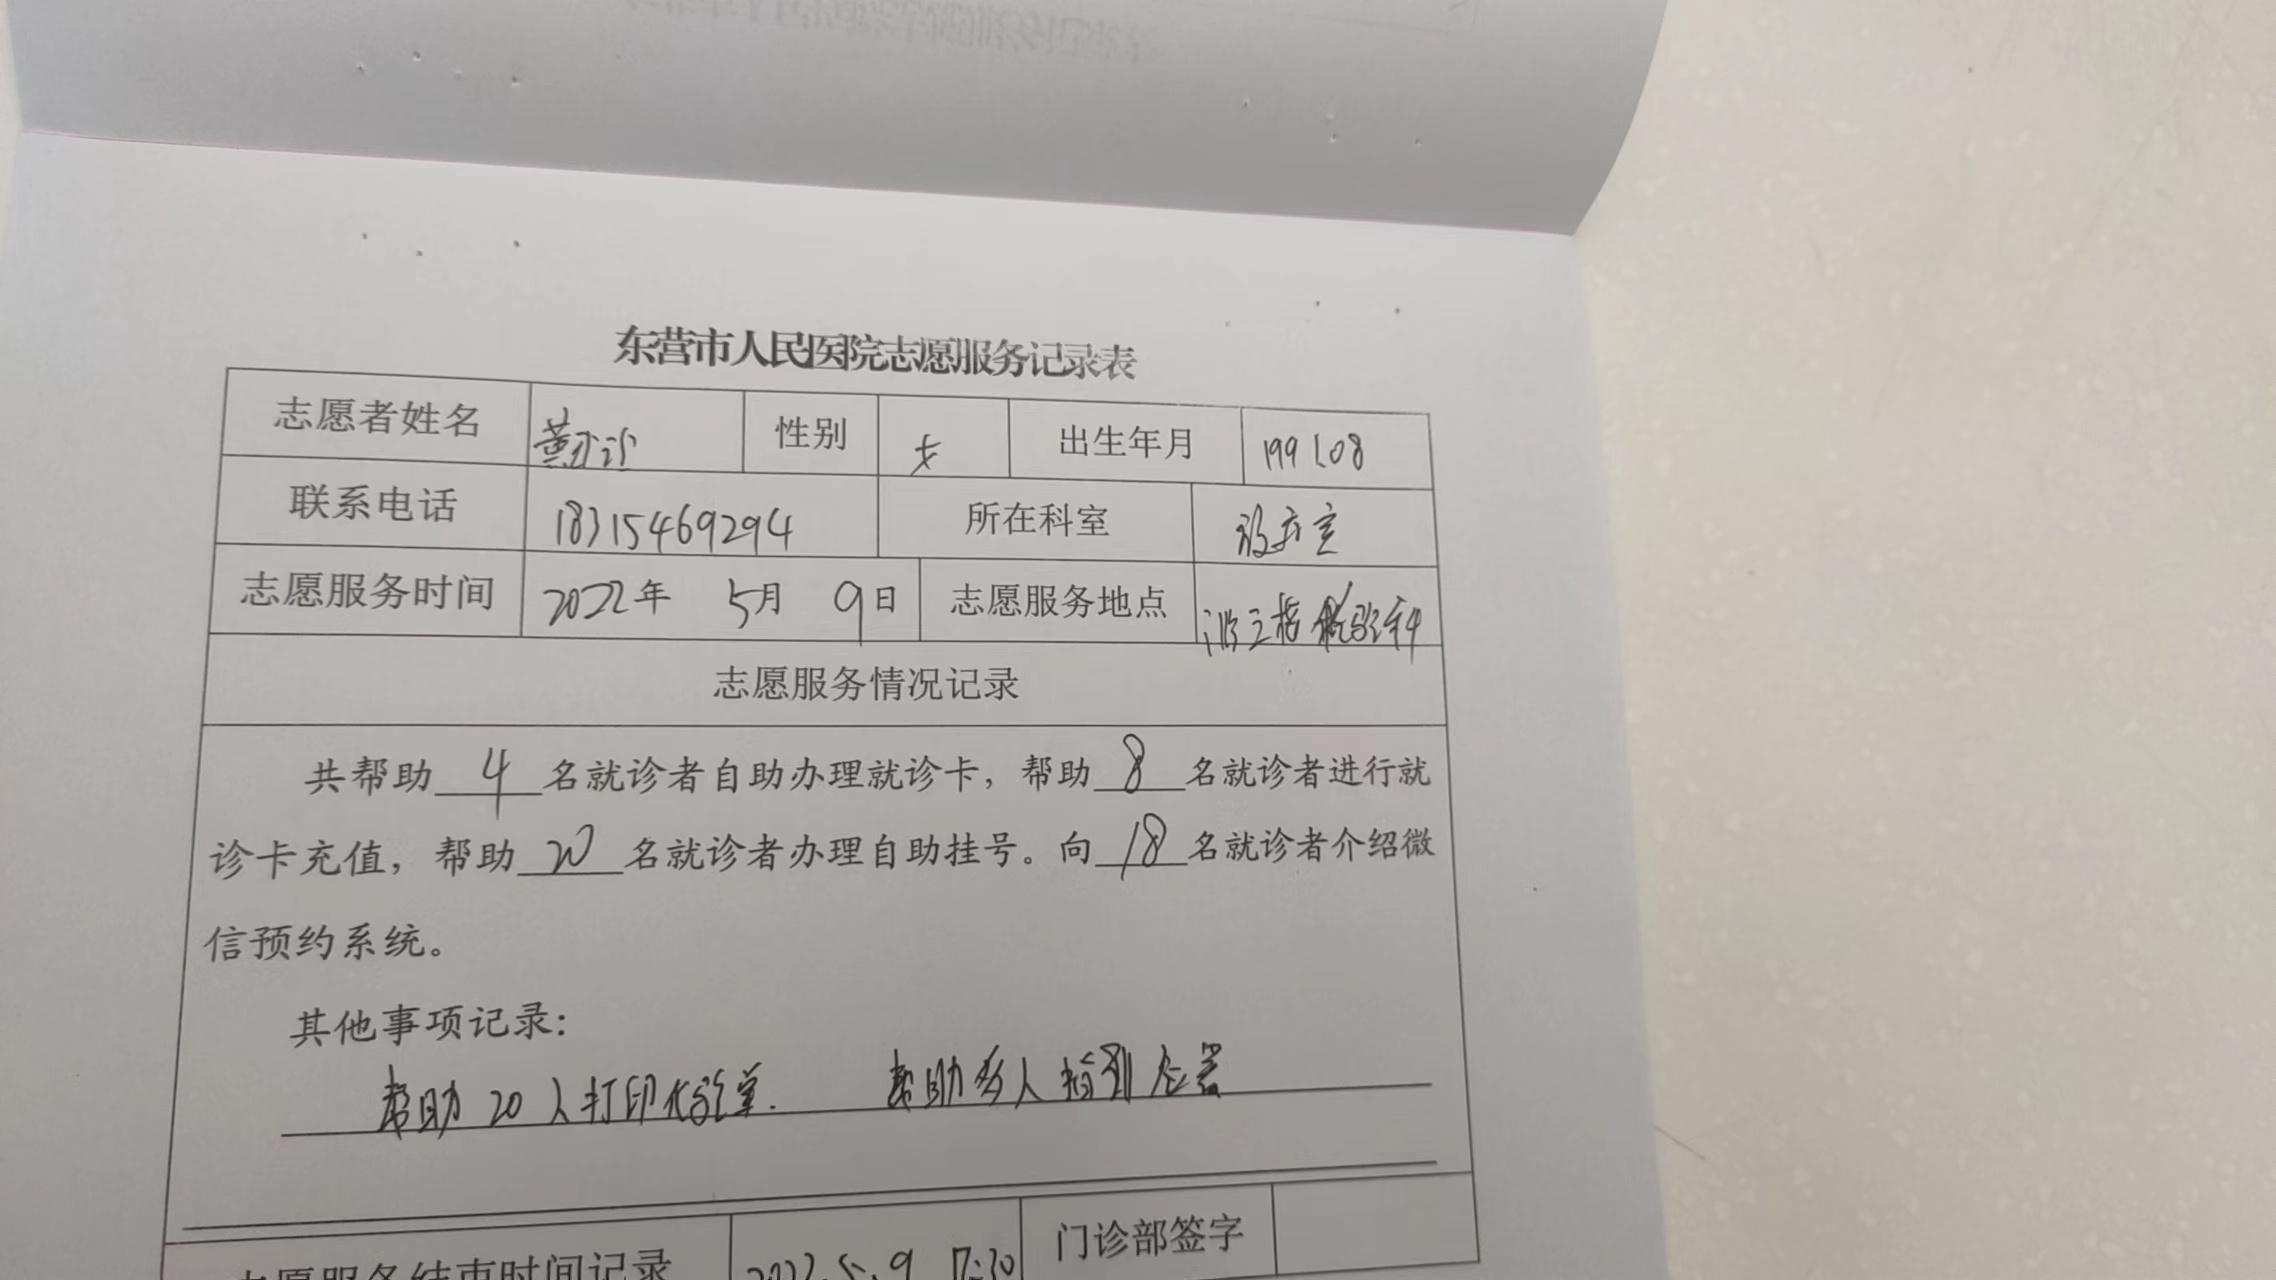 东营市人民医院志愿服务记录表
志愿者姓名 性别 女 出生年月 199108
联系电话 18315469294 所在科室
志愿服务时间 2022年 5月 9日 志愿服务地点 检验科
志愿服务情况记录
共帮助 4 名就诊者自助办理就诊卡，帮助 8 名就诊者进行就
诊卡充值，帮助 20 名就诊者办理自助挂号。向 18 名就诊者介绍微
信预约系统。
其他事项记录：
帮助20人打印化验单. 帮助多人指引位置
志愿服务结束时间记录 2022.5.9 17:30 门诊部签字